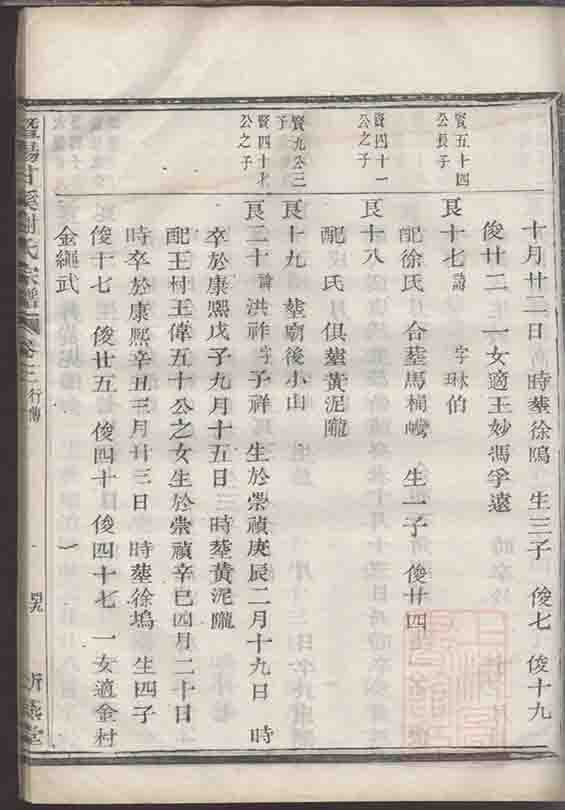 十月廿二日 時塟徐塢 生三子 俊七 俊十九
俊廿二 一女適王妙馮孚遠
賢五十四
公長子
良十七 諱 字 球伯
配徐氏 合塟馬桶㘭 生一子 俊廿四
賢四十一
公之子
良十八
配 氏 俱塟黃泥隴
賢九公三
子
良十九 塟廟後小山
賢四十七
公之子
良二十 諱 洪祚 字 子祥 生於崇禎庚辰二月十九日 時
卒於康熙戊子九月十五日 時塟黃泥隴
配王村王偉五十公之女生於崇禎辛巳四月二十日
時卒於康熙辛丑三月廿三日 時塟徐塢 生四子
俊十七 俊廿五 俊四十 俊四十七 一女適金村
金繩武
暨陽甘溪謝氏宗譜 卷十二 行傳